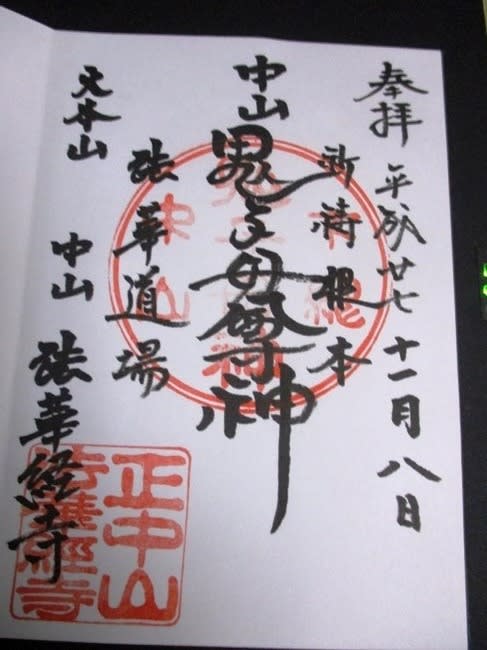 奉拝 平成廿七 十一月八日
祈祷根本
中山 鬼子母尊神
法華道場
大本山 中山 法華経寺
正中山
法華經寺